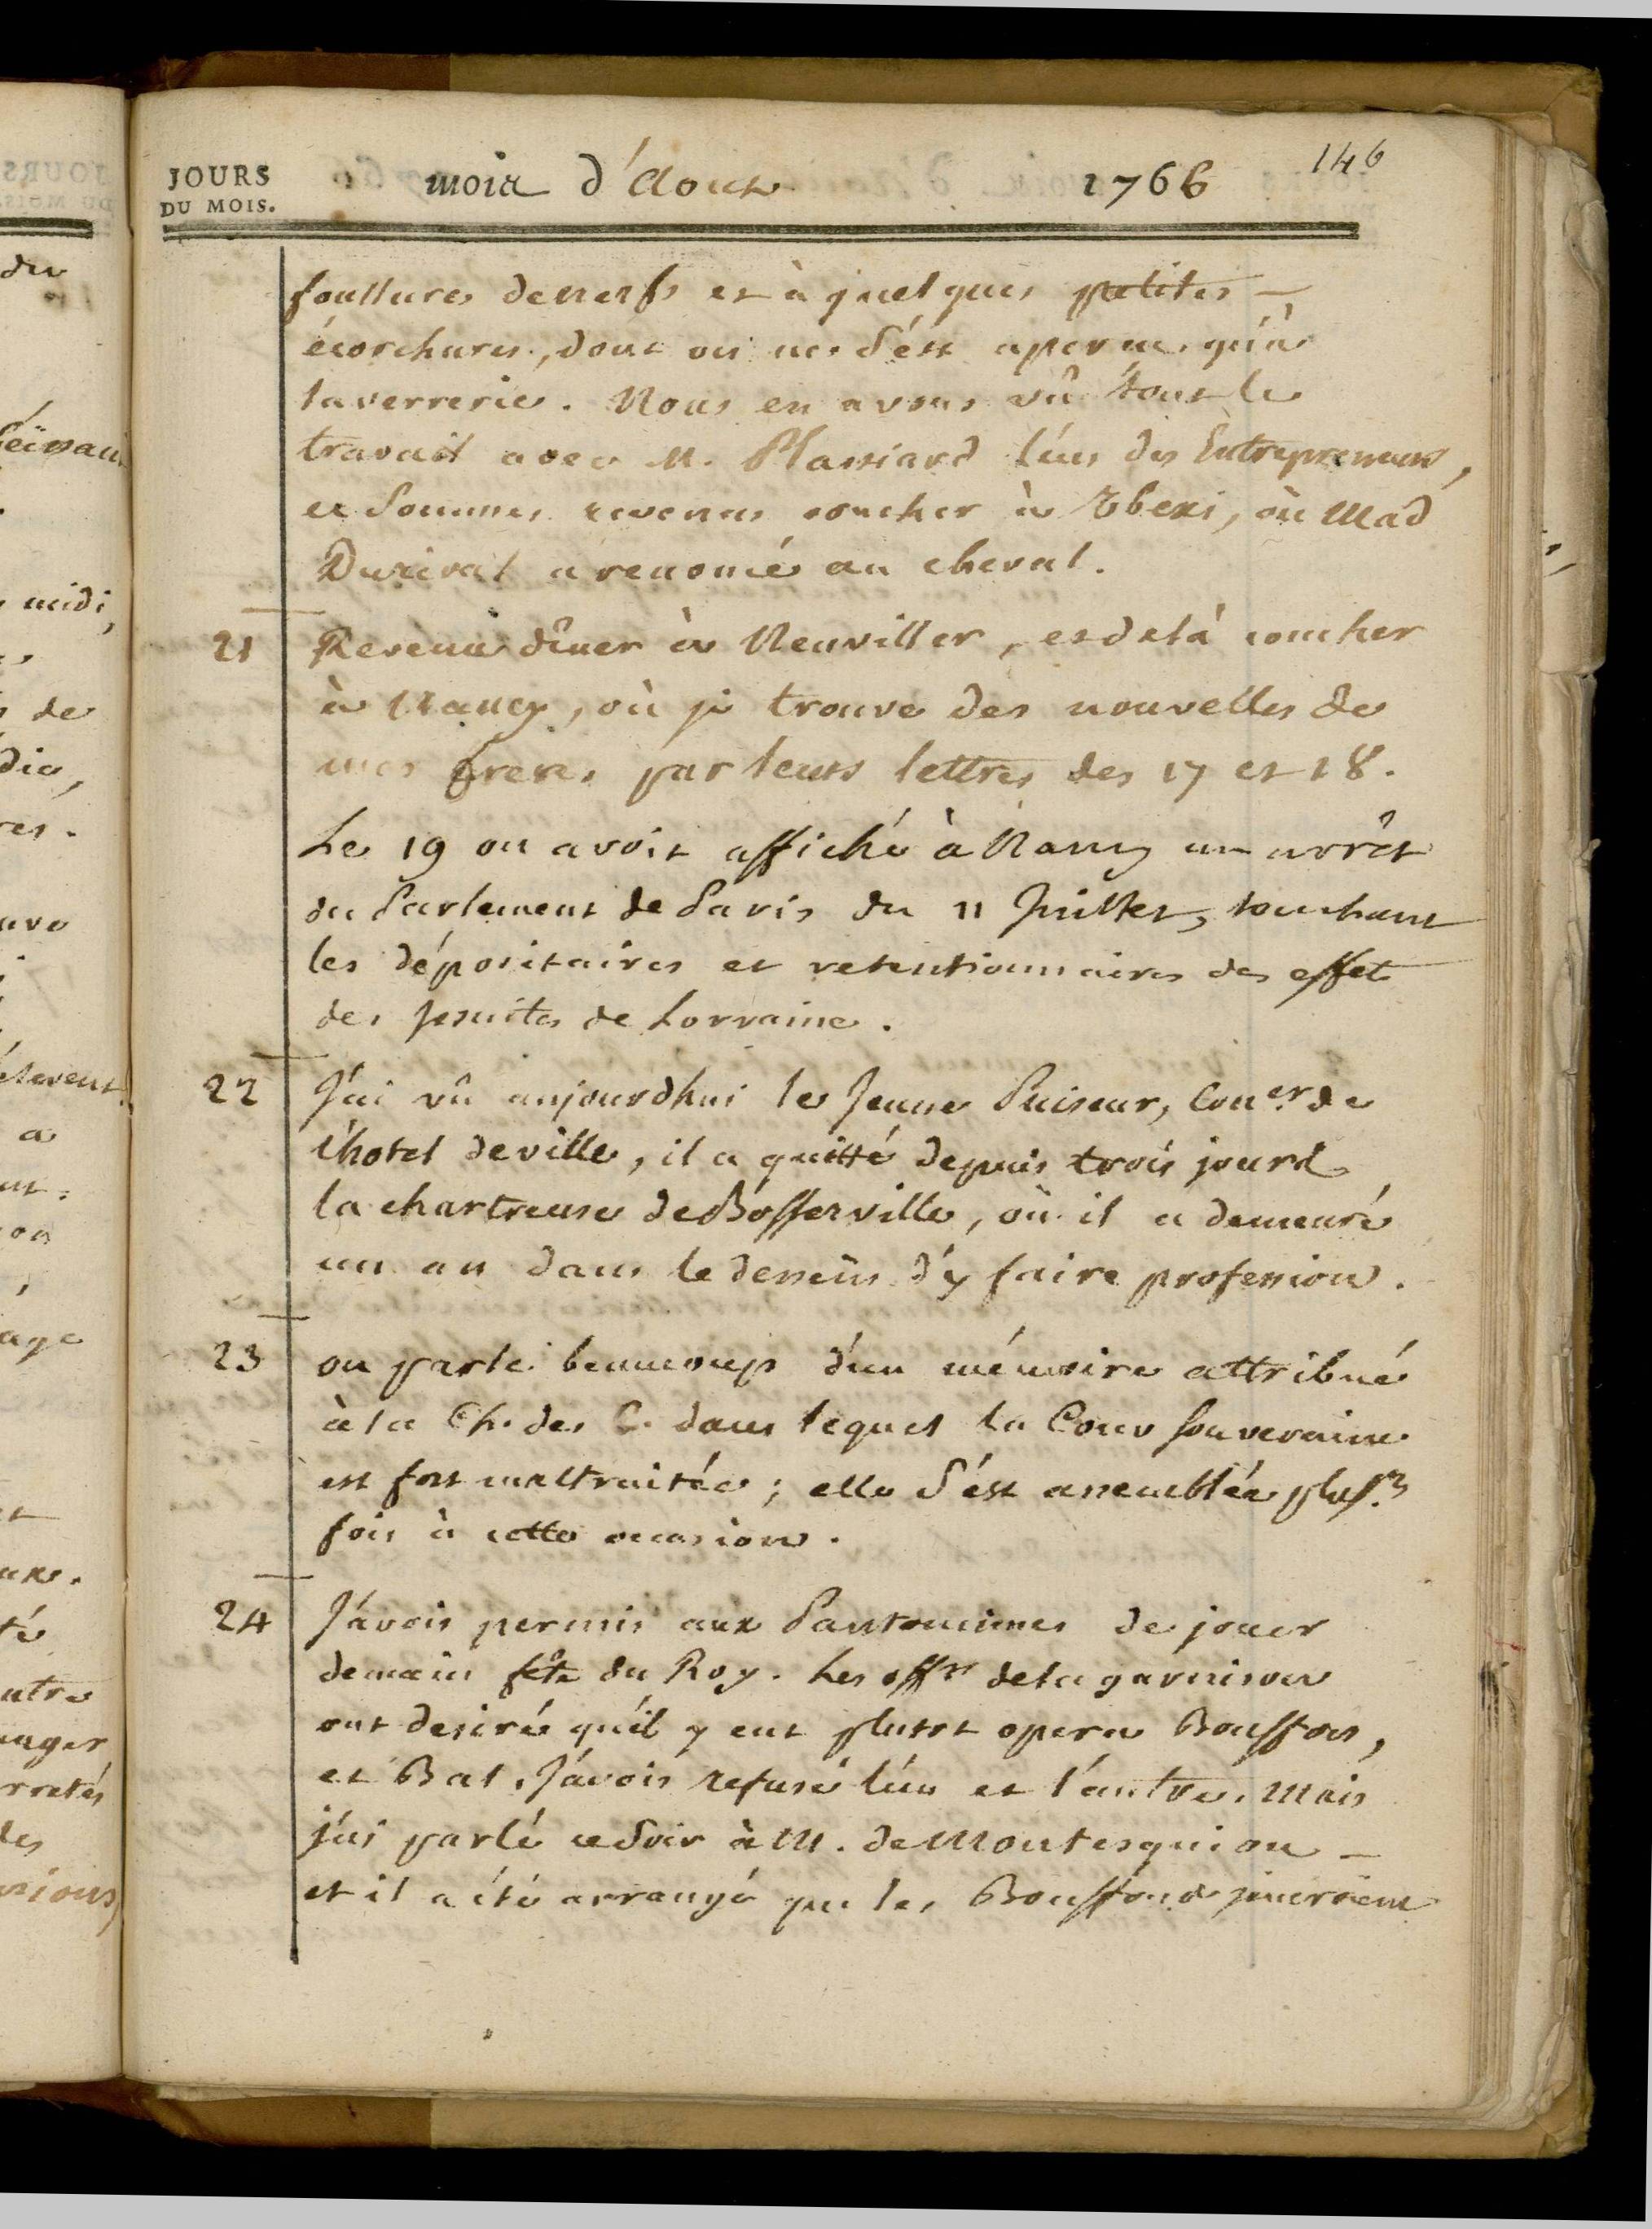 JOURS
DU MOIS.
mois d'Aoust
1766
146
foullures de nerfs et à quelques petites
écorchures, dont on ne s'est aperçu qu'à
la verrerie. Nous en avons vû tout le
travail avec M. Plassiard l'un des Entrepreneurs,
et sommes revenus coucher à Tberi, où Mad
Durival a renoncé au cheval.
21 Revenu dîner à Neuviller, et delà coucher
à Nancy, où je trouve des nouvelles de
mes freres par leurs lettres des 17 et 18.
Le 19 on avoit affiché à Nancy un arrêt
du Parlement de Paris du 11 Juillet, touchant
les dépositaires et retentionnaires des effets
des Jesuites de Lorraine.
22 J'ai vû aujourdhui le Jeune Puiseur, Coner de
l'hotel de ville, il a quitté depuis trois jours
la chartreuse de Bosserville, où il a demeuré
un an dans le dessein d'y faire profession.
23 on parle beaucoup d'un mémoire attribué
à la Ch. des C. dans lequel la Cour souveraine
est fort maltraitée; elle s'est assemblée plusrs
fois à cette occasion.
24 J'avois permis aux Pantomimes de jouer
demain fête du Roy. Les offrs de la garnison
ont desiré qu'il y eut plutot opera Bouffon,
et Bal. J'avois refusé l'un et l'autre. Mais
j'ai parlé ce soir à M. de Montesquiou
et il a été arrangé que les Bouffons joueroient